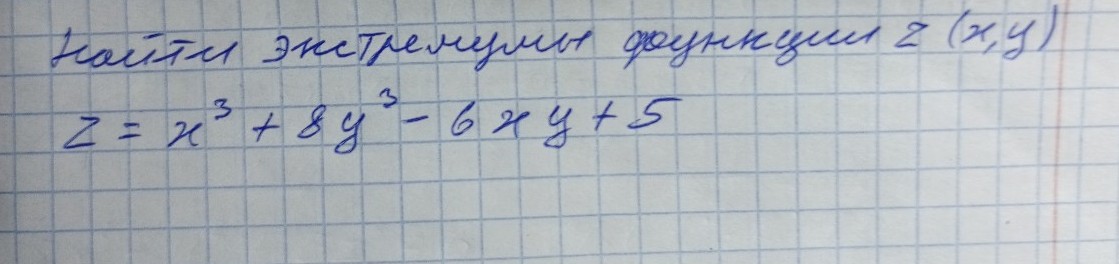 Найти экстремумы функции z (x,y)
z = x³ + 8y³ - 6xy + 5